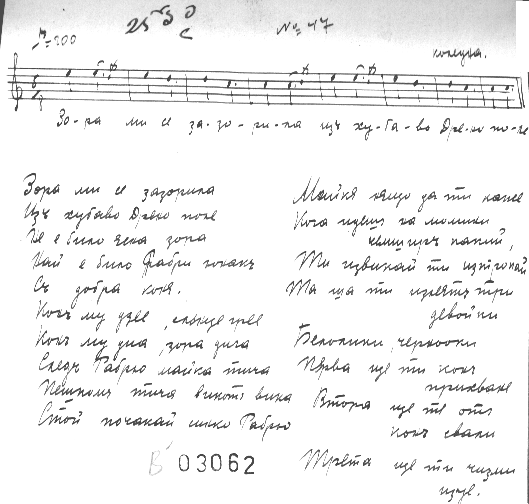 № 47
♩=200
коледна.
Зо-ра ми се за-зо-ри-ла изъ ху-ба-во Дре-но по-ле
Зора ми се зазорила
Изъ хубаво Дрено поле
Не е било ясна зора
Най е било Габри юнакъ
Съ добра коня.
Конь му
Конь му зора
Следъ Габрю майка тича
Пешкомъ тича викотъ вика
Стой почакай синко Габрю
Майкя нящо да ти каже
Кога идешъ на момини
Ти извикай ти изтропай
Та ща ти излязтъ три
девойки
Белолики, чернооки
Първа ще ти конь
прихване
Втора ще те отъ
конь свали
Трета ще ти чизми
изуе.
В 03062